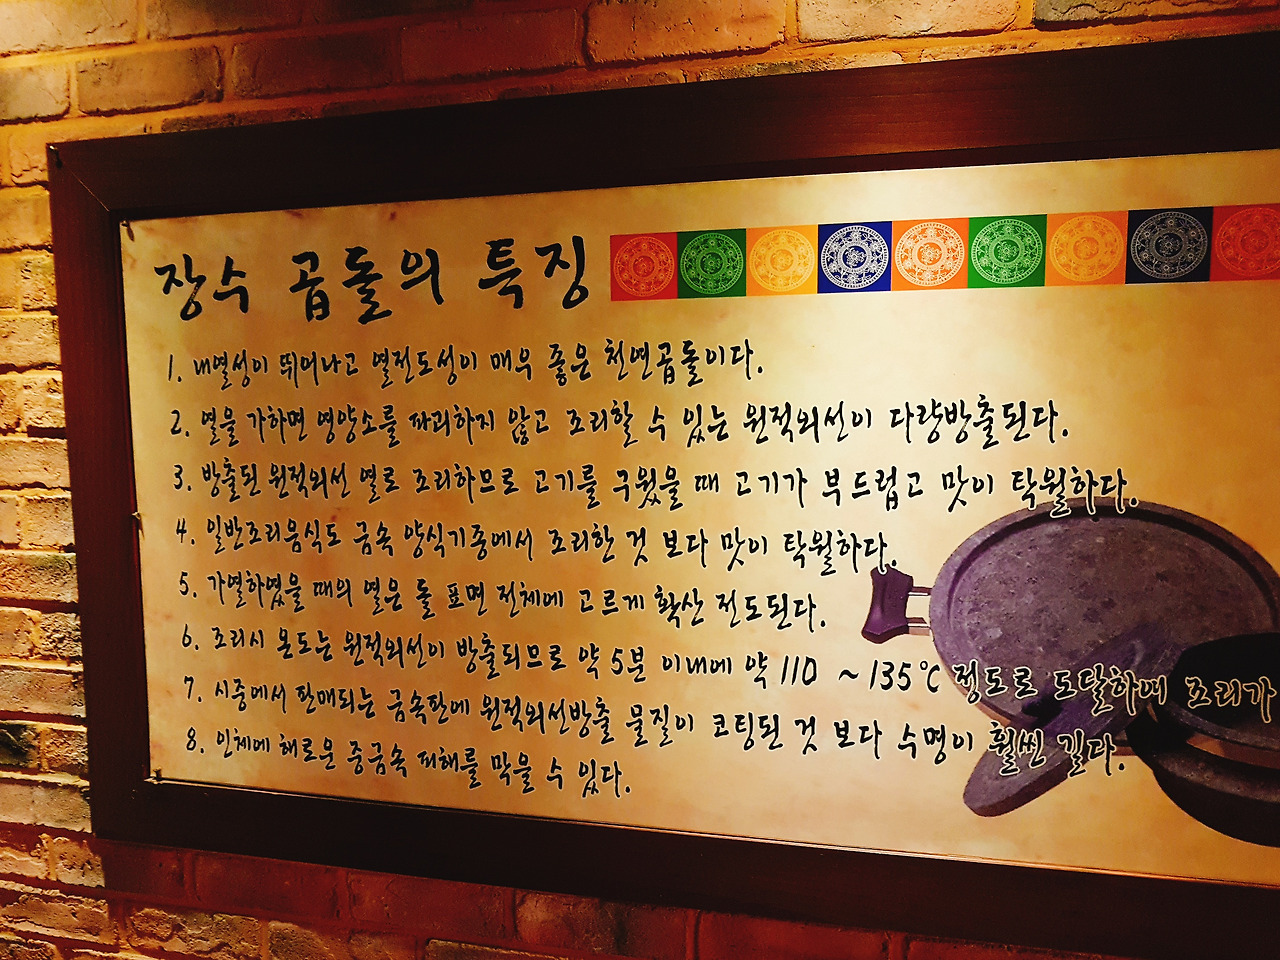 장수 곱돌의 특징
1. 내열성이 뛰어나고 열전도성이 매우 좋은 천연곱돌이다.
2. 열을 가하면 영양소를 파괴하지 않고 조리할 수 있는 원적외선이 다량방출된다.
3. 방출된 원적외선 열로 조리하므로 고기를 구웠을 때 고기가 부드럽고 맛이 탁월하다.
4. 일반조리음식도 금속 양식기중에서 조리한 것 보다 맛이 탁월하다.
5. 가열하였을 때의 열은 돌 표면 전체에 고르게 확산 전도된다.
6. 조리시 온도는 원적외선이 방출되므로 약 5분 이내에 약 110 ~135℃ 정도로 도달하여 조리가
7. 시중에서 판매되는 금속판에 원적외선방출 물질이 코팅된 것 보다 수명이 훨씬 길다.
8. 인체에 해로운 중금속 피해를 막을 수 있다.